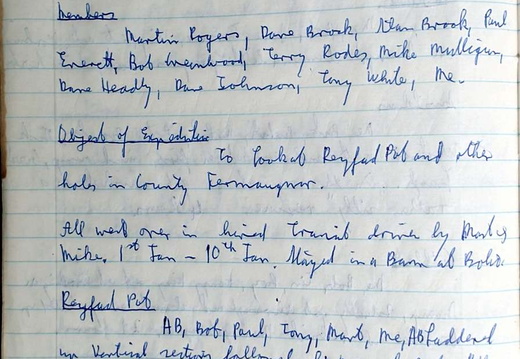 Members
Martin Rogers, Dave Brook, Alan Brook, Paul
Everett, Bob Greenwood, Terry Rodes, Mike Mulligan,
Dave Headly, Dave Johnson, Tony White, Me.
Object of Expedition
To look at Reyfad Pot and other
holes in County
All went over in hired Transit driven by Mart &
Mike. 1st Jan – 10th Jan. Stayed in a Barn at Boho.
Reyfad Pot
AB, Bob, Paul, Tony, Mart, Me, AB laddered
up Vertical section